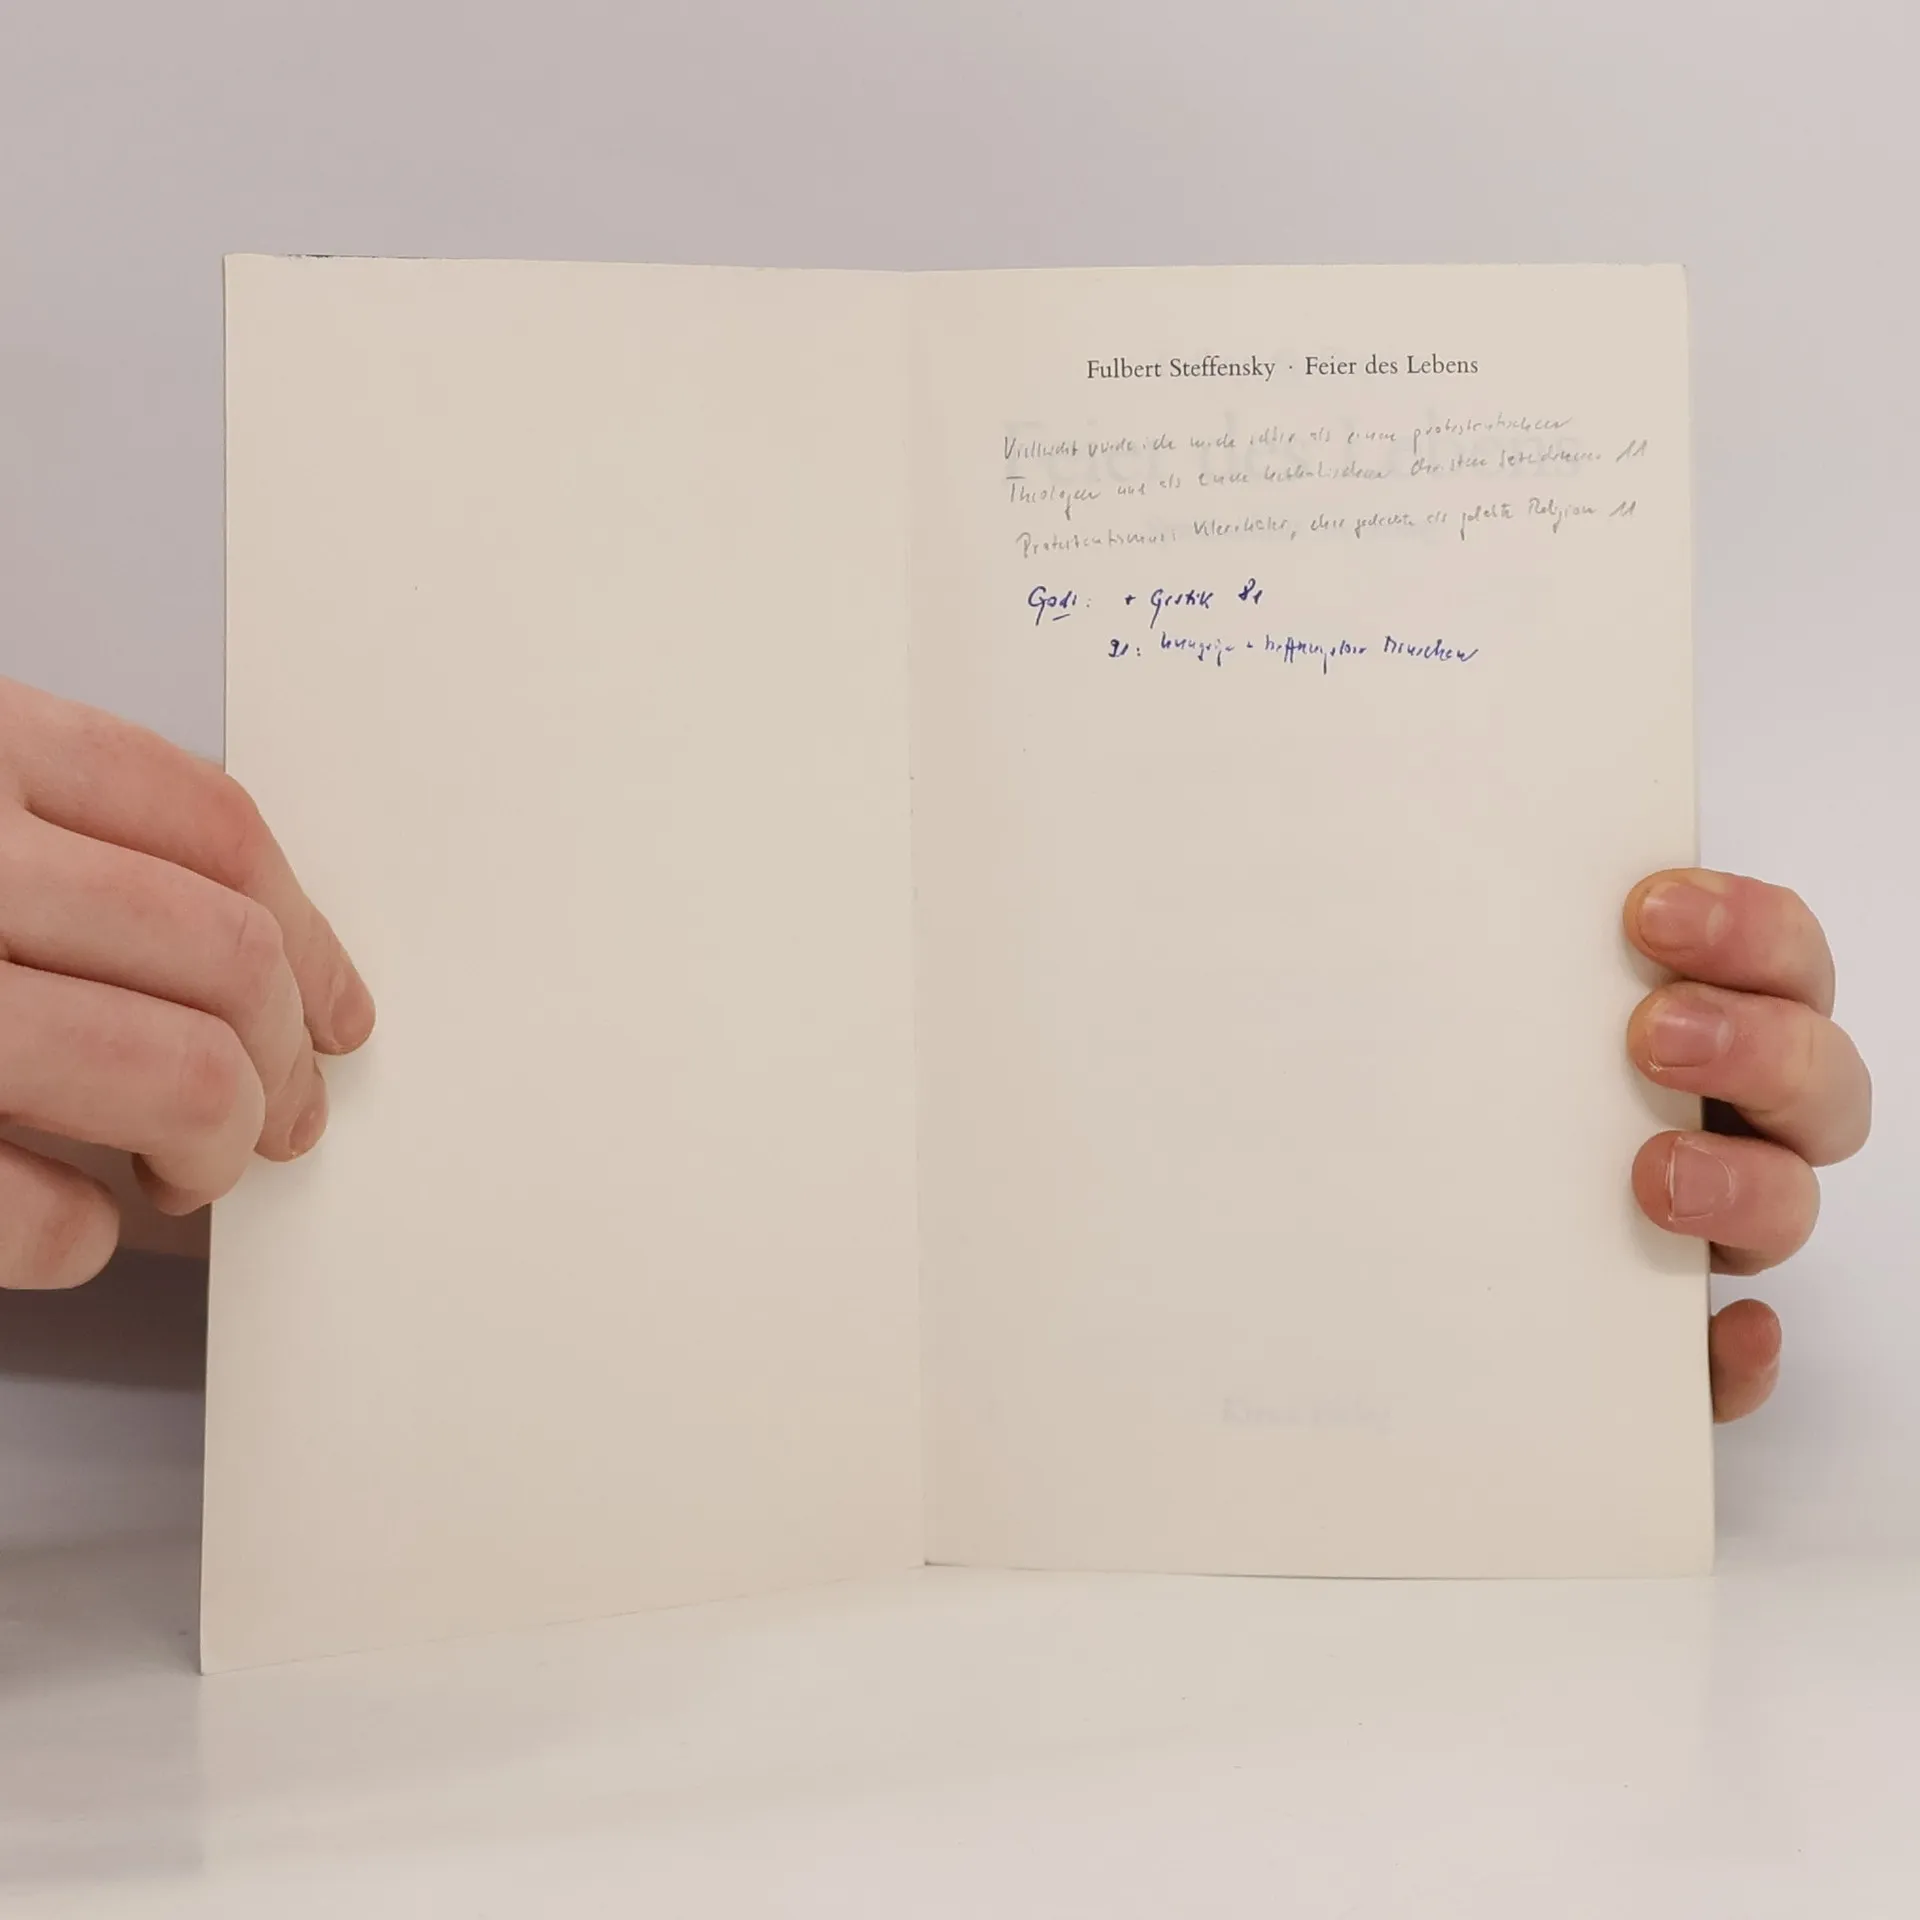 Fulbert Steffensky · Feier des Lebens
Vielleicht würde ich mich selber als einen protestantischen
Theologen und als einen katholischen Christen bezeichnen 11
Protestantismus: eher gedachte als gelebte Religion 11
Godi: + Gestik 81
91: hungrige + hoffnungslose Menschen
Feier des Lebens
Kreuz Verlag